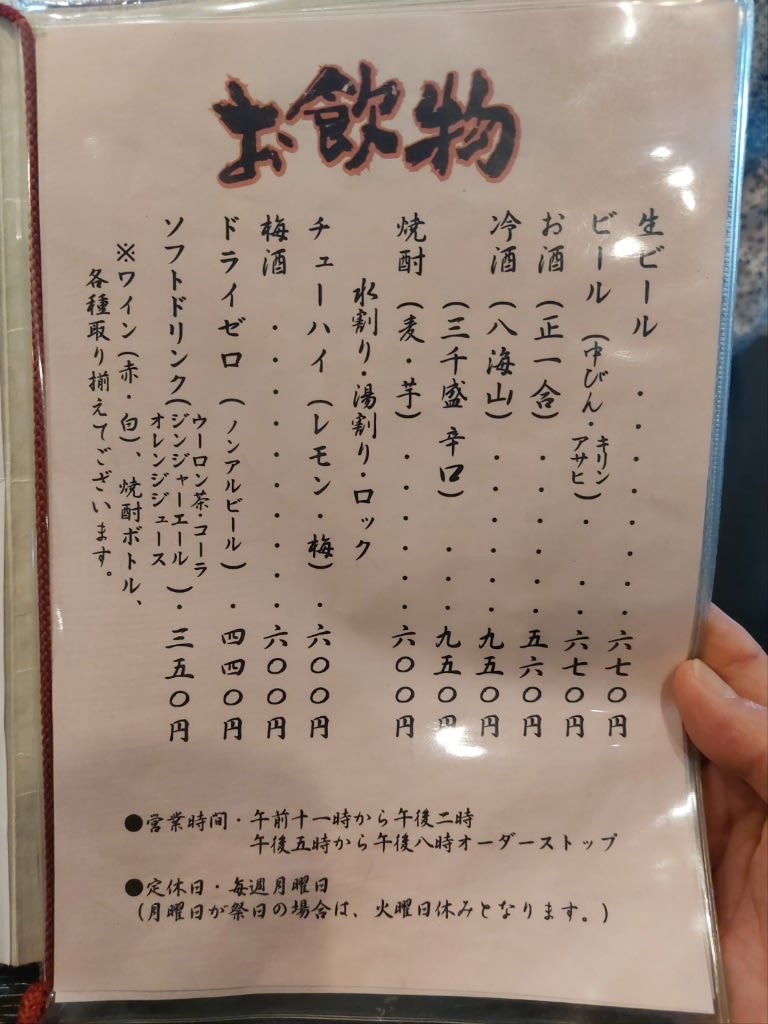 お飲物
生ビール・・・・・・・・六七〇円
ビール（中びん・キリン アサヒ）・・・六七〇円
お酒（正一合）・・・・・・五六〇円
冷酒（八海山）・・・・・・九五〇円
（三千盛 辛口）・・・九五〇円
焼酎（麦・芋）・・・・・・六〇〇円
水割り・湯割り・ロック
チューハイ（レモン・梅）・六〇〇円
梅酒・・・・・・・・・・六〇〇円
ドライゼロ（ノンアルビール）・四四〇円
ソフトドリンク（ウーロン茶・コーラ
ジンジャーエール
オレンジジュース）・三五〇円
※ワイン（赤・白）、焼酎ボトル、
各種取り揃えてございます。
●営業時間・午前十一時から午後二時
午後五時から午後八時オーダーストップ
●定休日・毎週月曜日
（月曜日が祭日の場合は、火曜日休みとなります。）